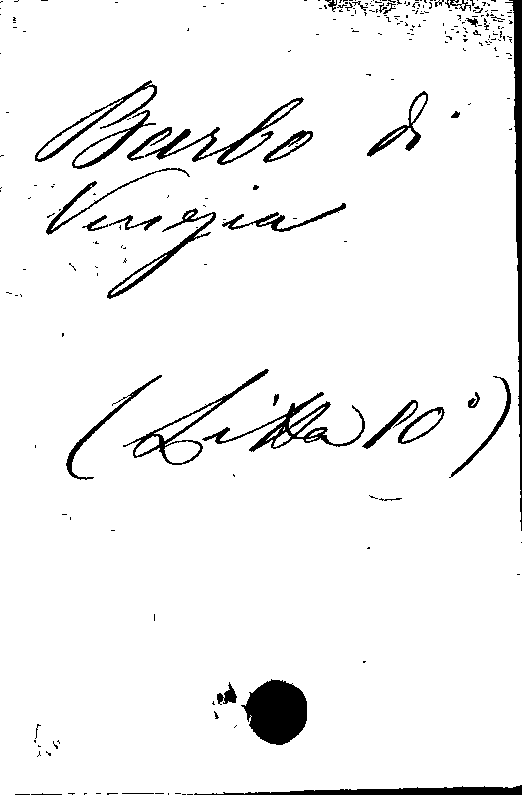 Barbo di
Venezia
(Litta 10°)